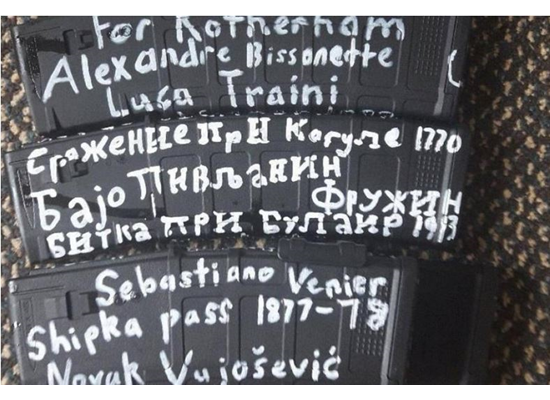 for Rotherham
Alexandre Bissonette
Luca Traini
Сражение при Кагуле 1770
Бајо Пивљанин
Фружин
Битка при Булаир 1913
Sebastiano Venier
Shipka pass 1877-78
Novak Vujošević